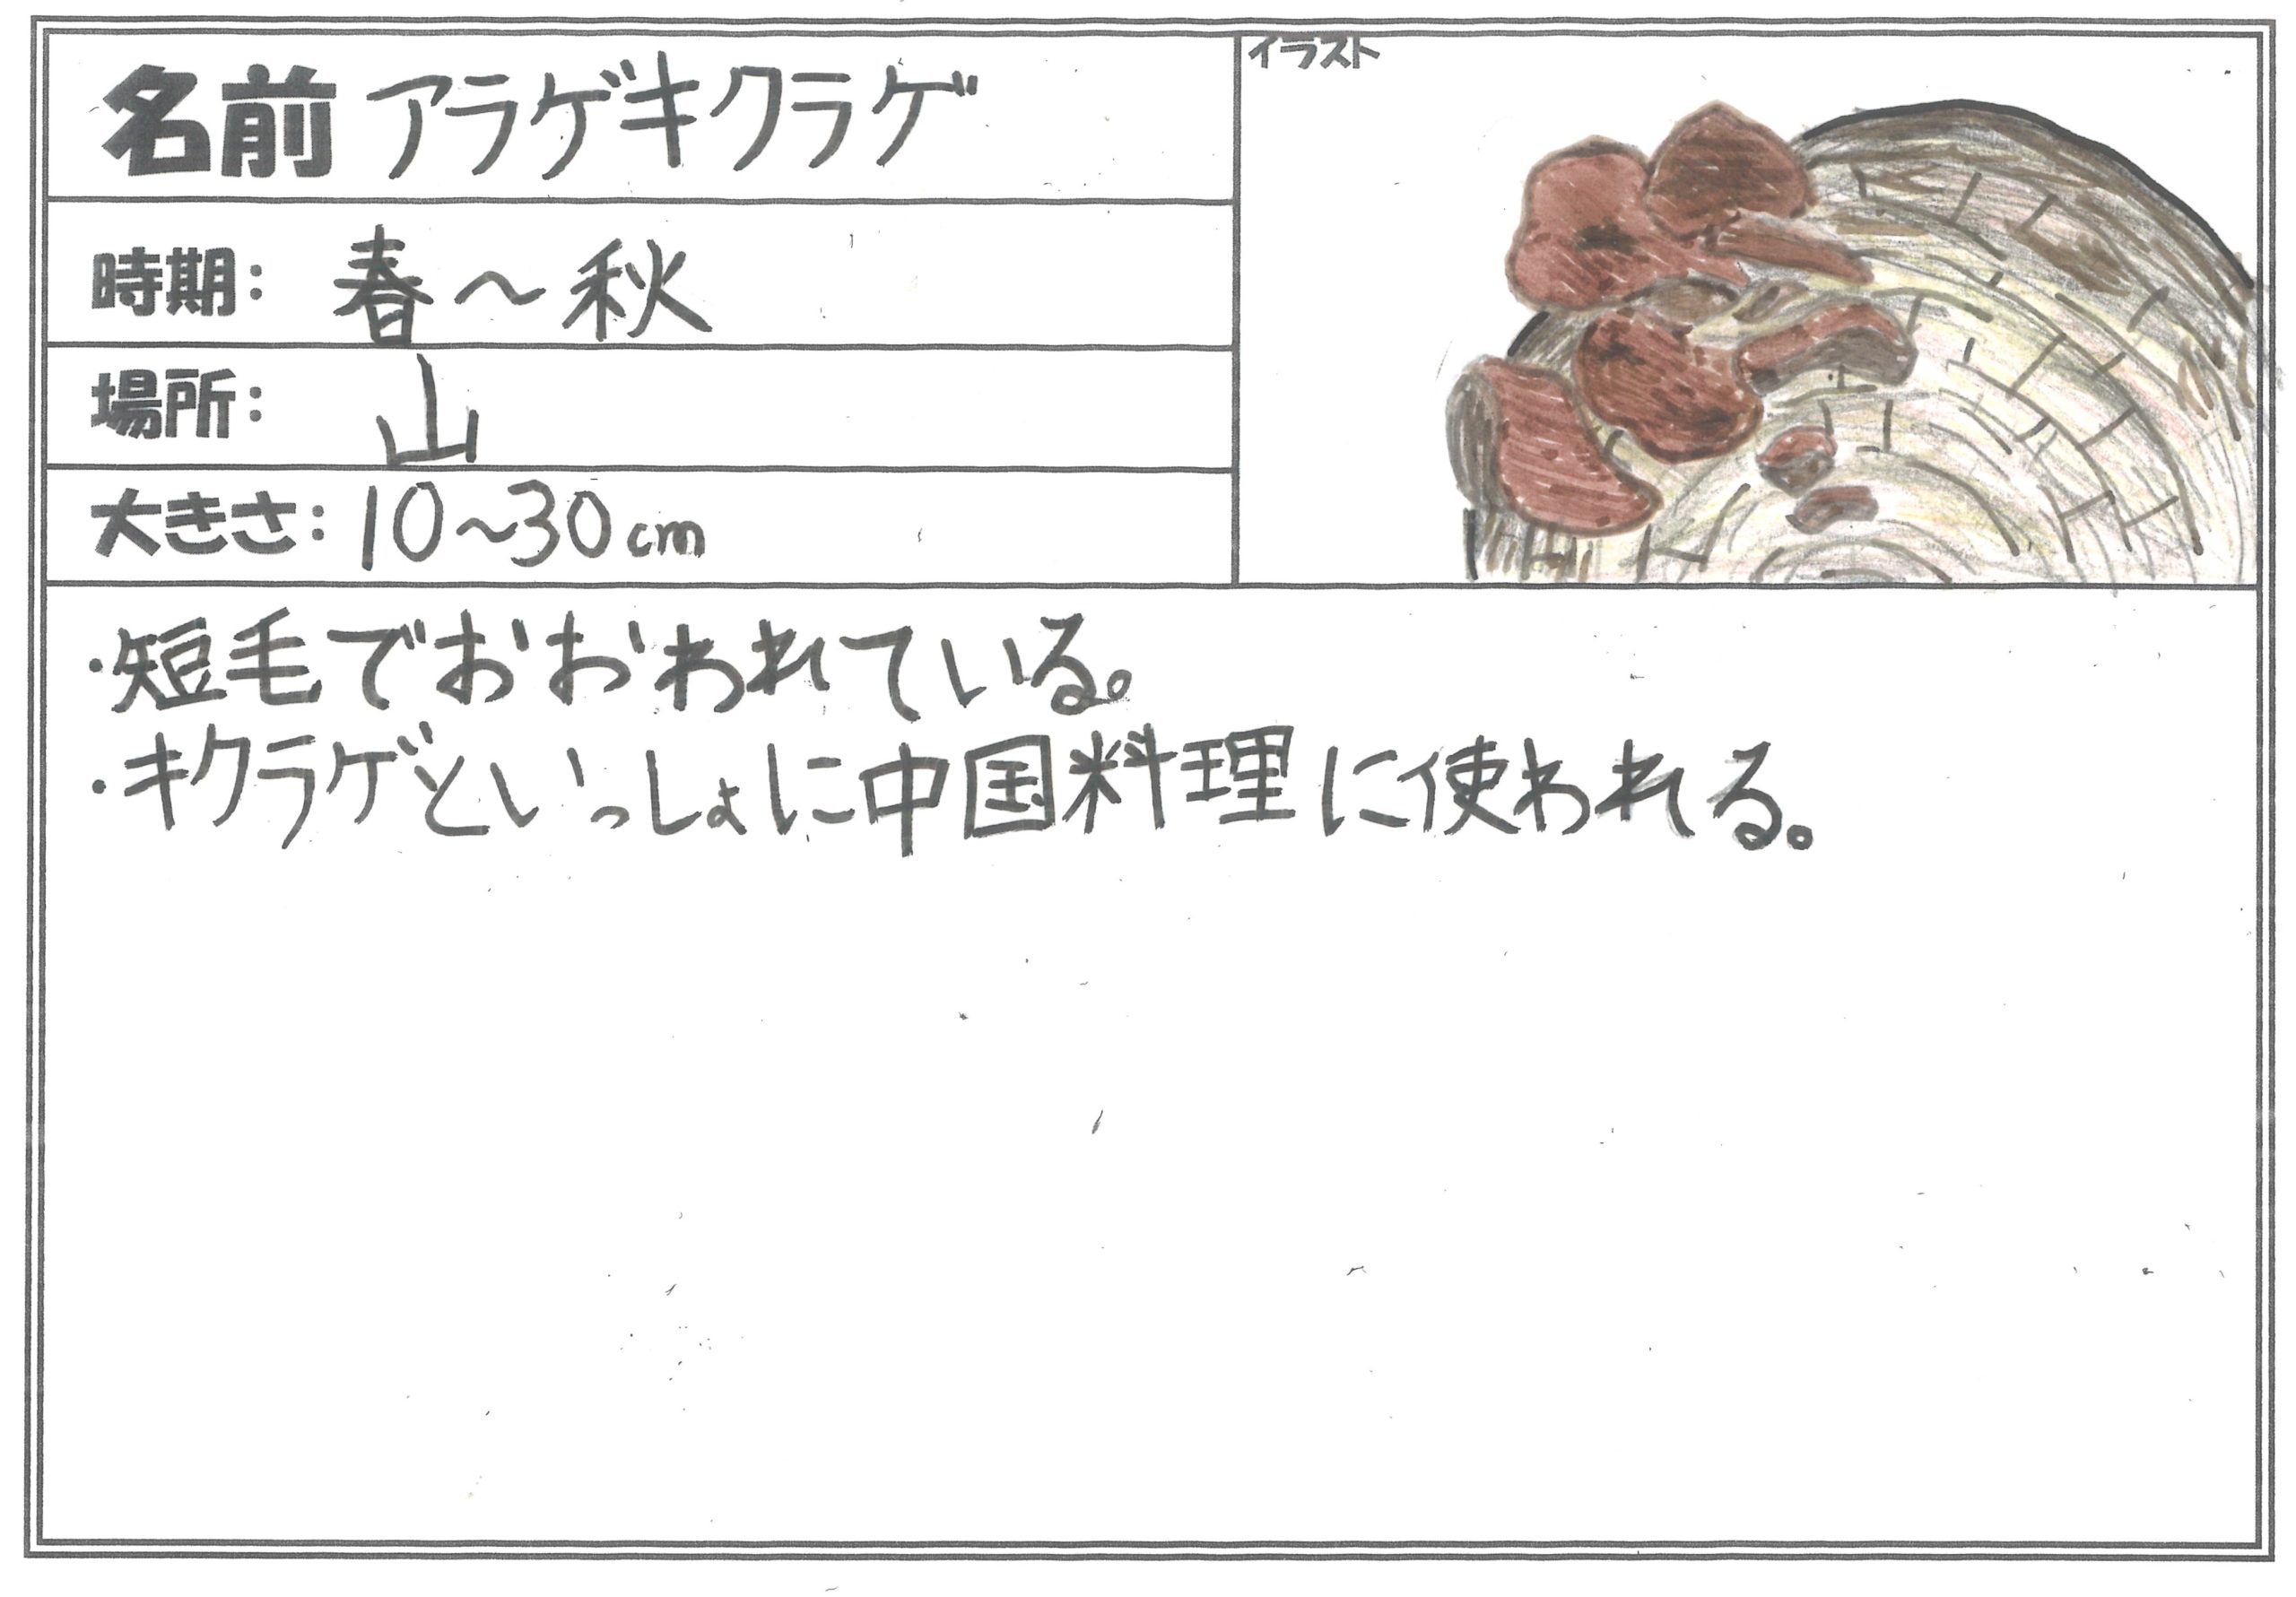 名前 アラゲキクラゲ
イラスト
時期: 春～秋
場所: 山
大きさ: 10～30cm
・短毛でおおわれている。
・キクラゲといっしょに中国料理に使われる。